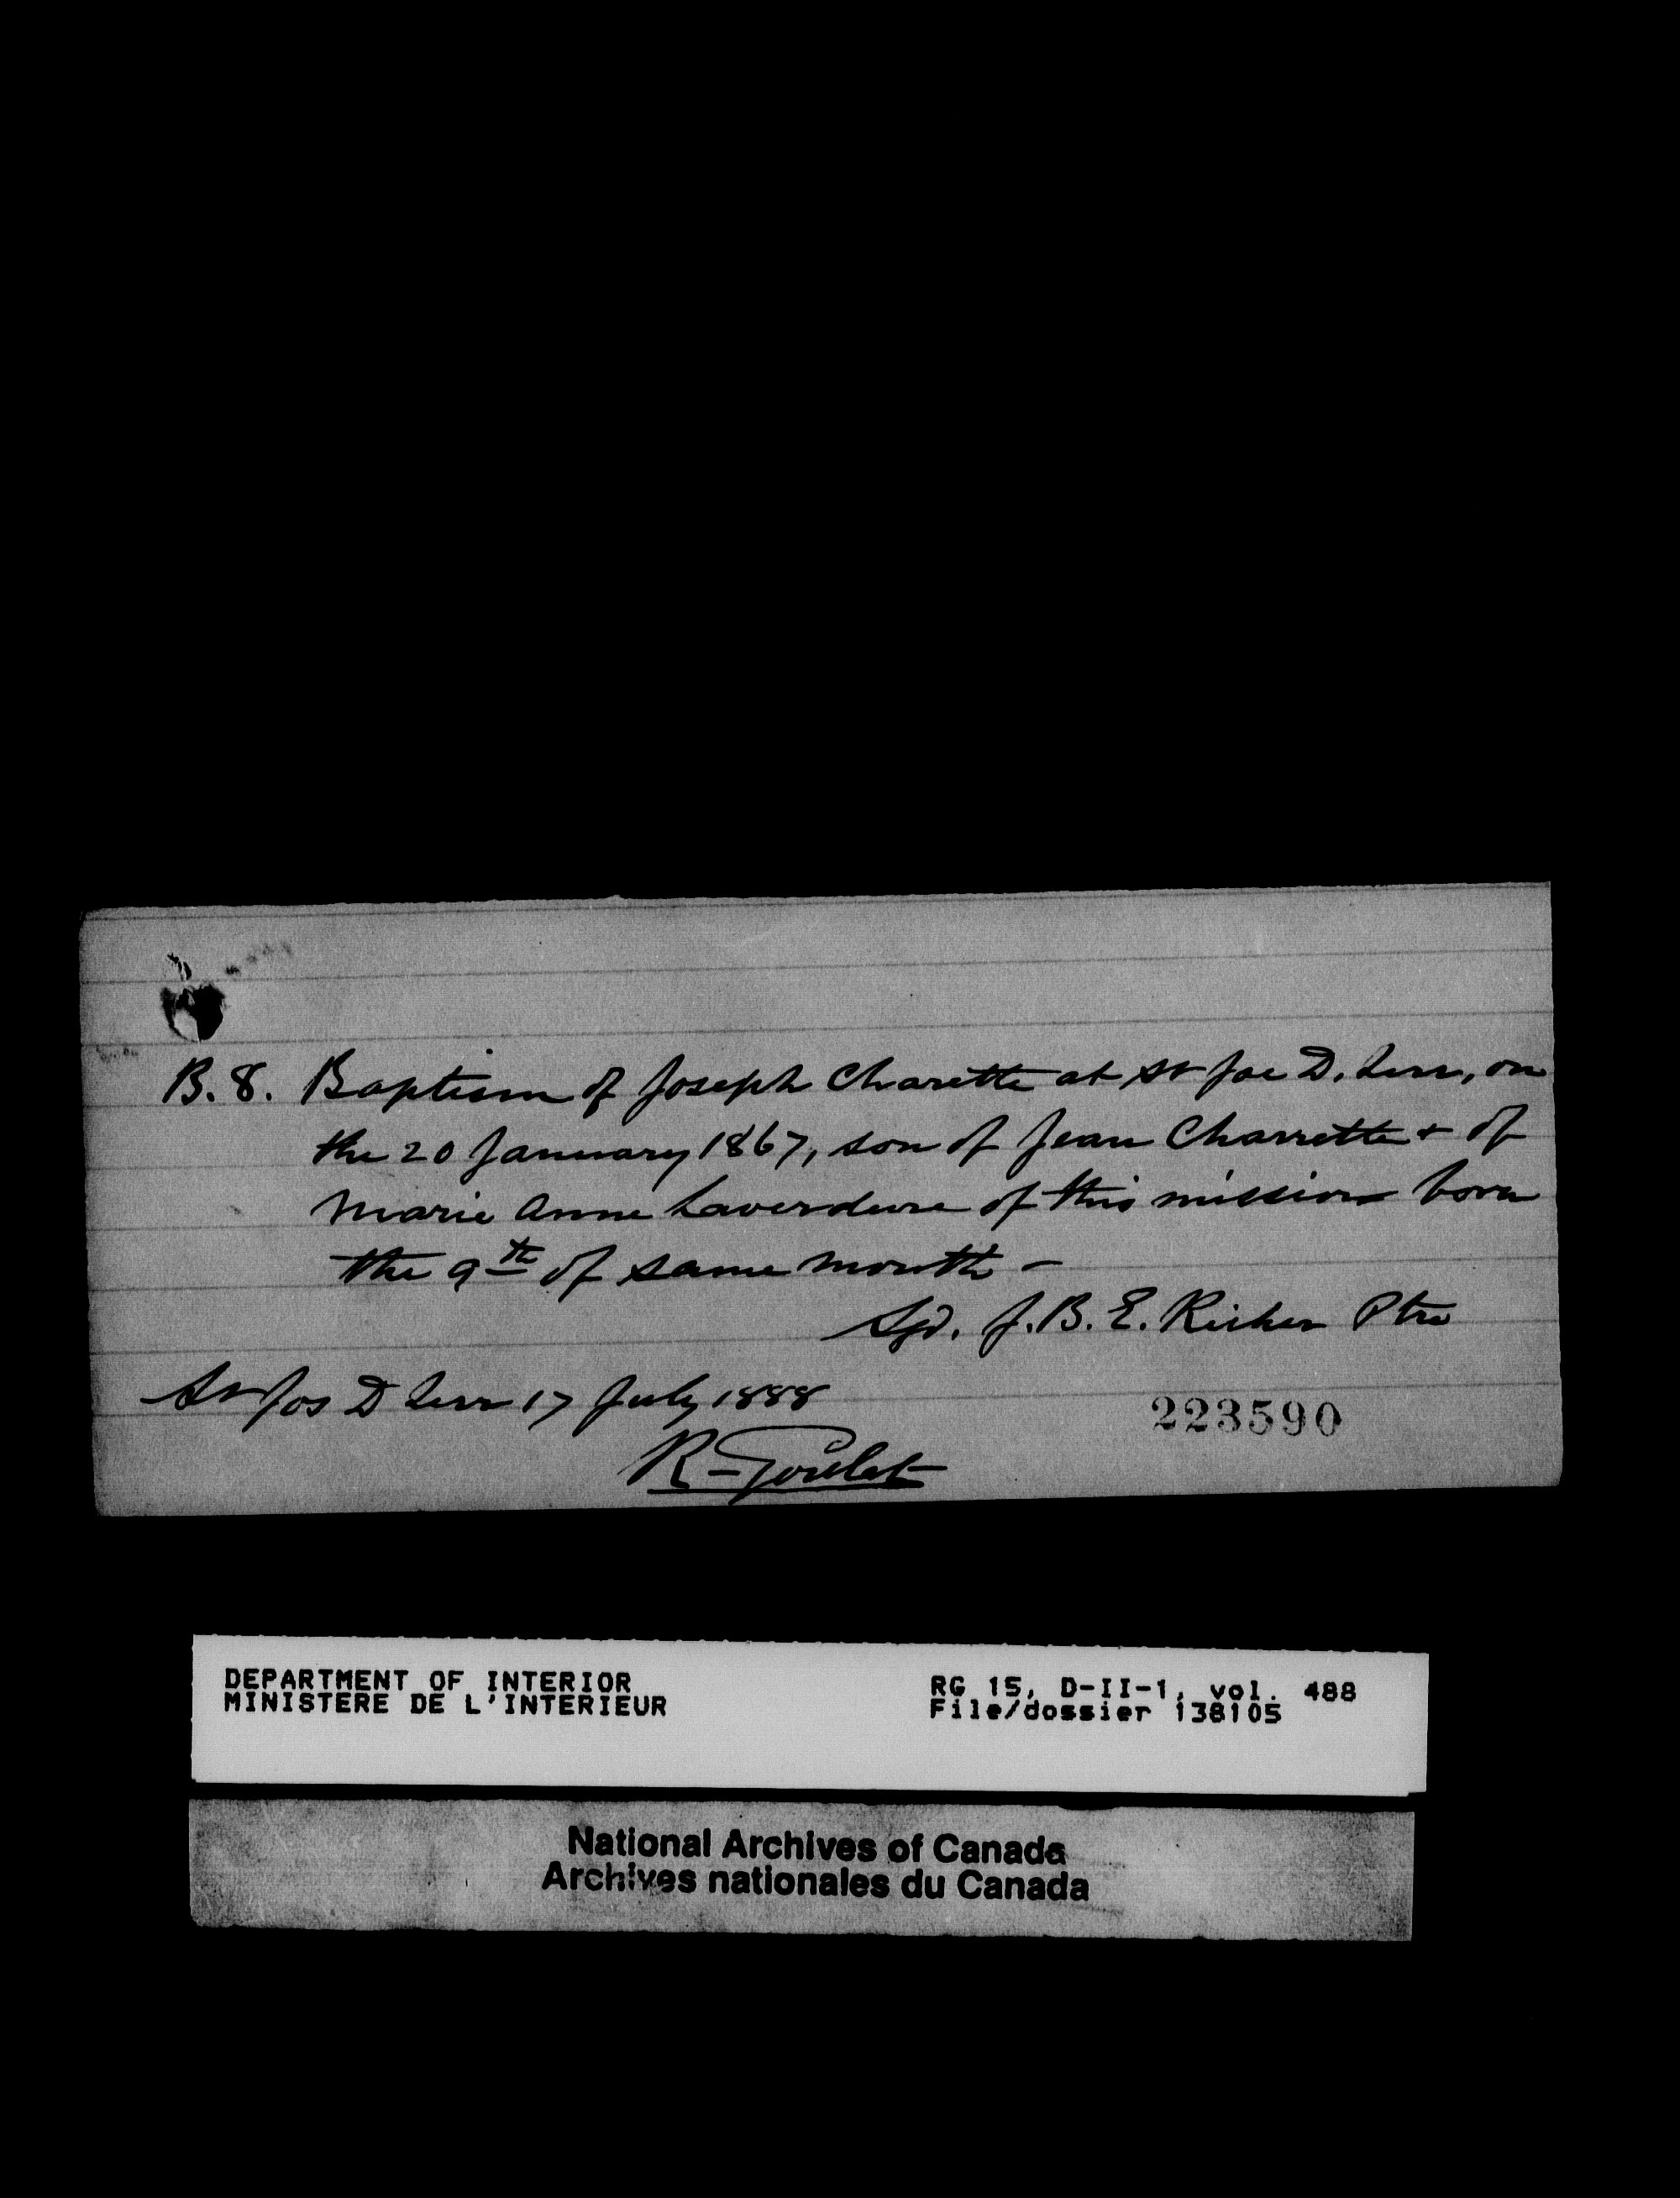 B. 8. Baptism of Joseph Charette at St Joe D. Terr, on
the 20 January 1867, son of Jean Charrette + of
Marie Anne Laverdure of this mission born
the 9th of same month –
Sgd. J. B. E. Richer Ptre
St Jos D Terr 17 July 1888
223590
R. Goulet
DEPARTMENT OF INTERIOR
MINISTERE DE L'INTERIEUR
RG 15, D-II-1, vol. 488
File/dossier 138105
National Archives of Canada
Archives nationales du Canada